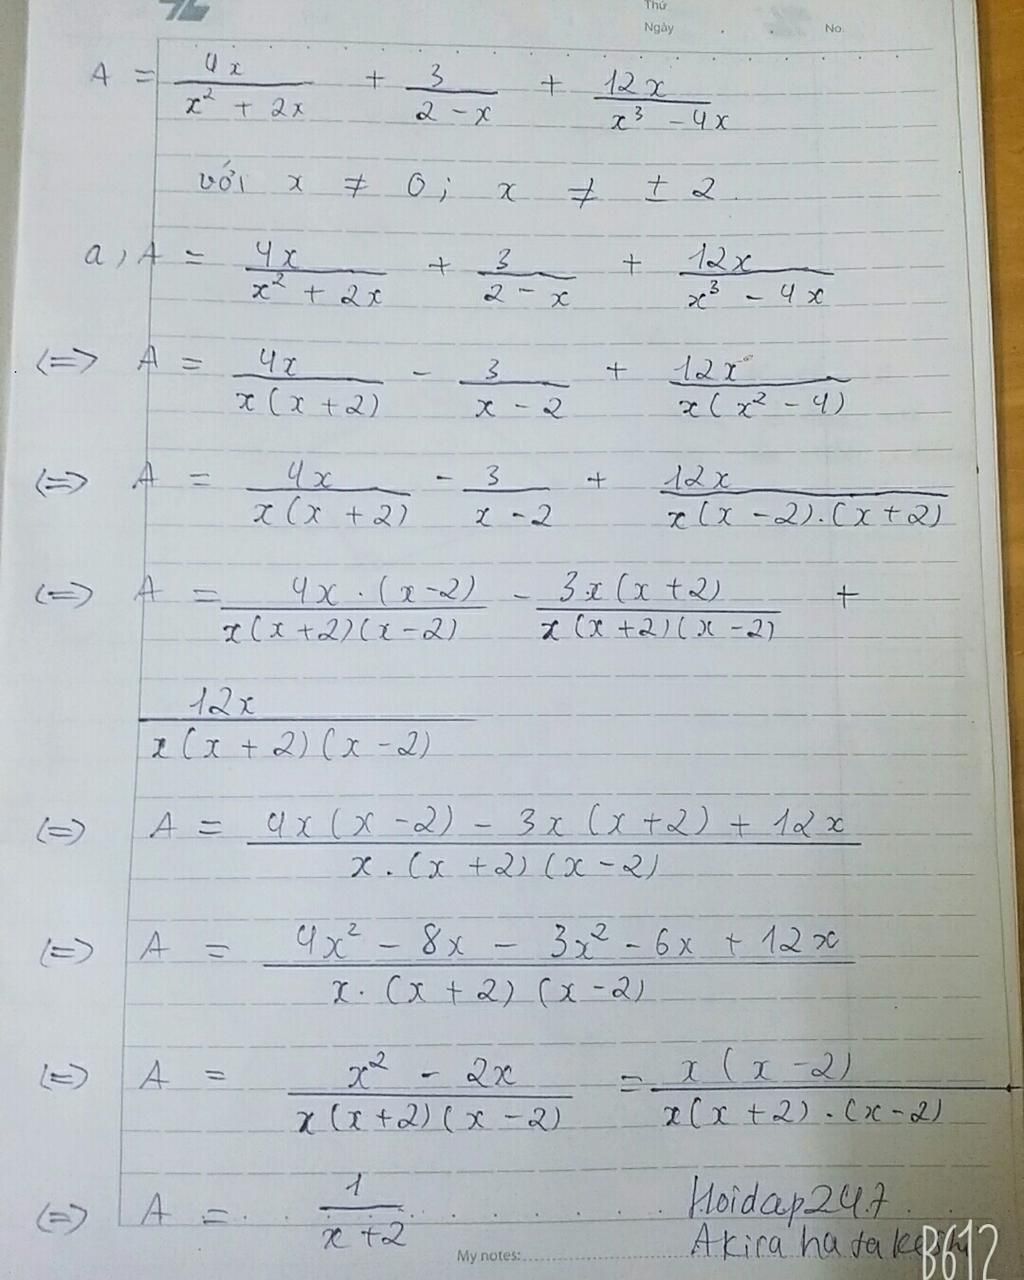 Thứ
Ngày . . No.
A = 4x/(x² + 2x) + 3/(2 - x) + 12x/(x³ - 4x)
với x ≠ 0; x ≠ ± 2
a, A = 4x/(x² + 2x) + 3/(2 - x) + 12x/(x³ - 4x)
(=) A = 4x/(x(x + 2)) - 3/(x - 2) + 12x/(x(x² - 4))
(=) A = 4x/(x(x + 2)) - 3/(x - 2) + 12x/(x(x - 2).(x + 2))
(=) A = 4x.(x - 2)/(x(x + 2)(x - 2)) - 3x(x + 2)/(x(x + 2)(x - 2)) +
12x/(x(x + 2)(x - 2))
(=) A = (4x(x - 2) - 3x(x + 2) + 12x)/(x.(x + 2)(x - 2))
(=) A = (4x² - 8x - 3x² - 6x + 12x)/(x.(x + 2)(x - 2))
(=) A = (x² - 2x)/(x(x + 2)(x - 2)) = x(x - 2)/(x(x + 2).(x - 2))
(=) A = 1/(x + 2)
Hoidap247
Akira
My notes:
B612